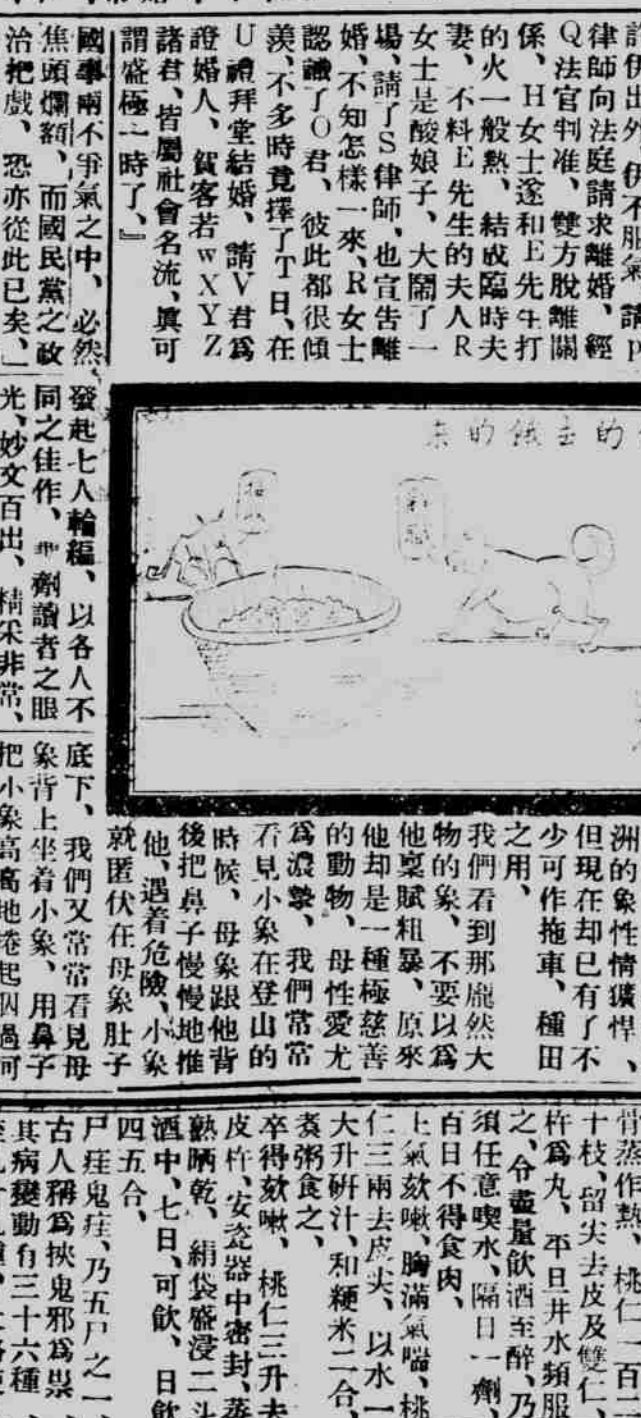 許伊出外、伊不服氣、請P
律師向法庭請求離婚、經
Q法官判准、雙方脫離關
係、H女士遂和E先生打
的火一般熱、結成臨時夫
妻、不料E先生的夫人R
女士是酸娘子、大鬧了一
場、請了S律師、也宣告離
婚、不知怎樣一來、R女士
認識了O君、彼此都很傾
羨、不多時竟擇了T日、在
U禮拜堂結婚、請V君爲
證婚人、賀客若wXYZ
諸君、皆屬社會名流、眞可
謂盛極一時了、』
國事兩不爭氣之中、必然
焦頭爛額、而國民黨之政
治把戲、恐亦從此已矣、」
來的餓去的
發起七人輪編、以各人不
同之佳作、劑讀者之眼
光、妙文百出、精采非常、
洲的象性情獷悍、
但現在却已有了不
少可作拖車、種田
之用、
我們看到那龐然大
物的象、不要以爲
他稟賦粗暴、原來
他却是一種極慈善
的動物、母性愛尤
爲濃摯、我們常常
看見小象在登山的
時候、母象跟他背
後把鼻子慢慢地推
他、遇着危險、小象
就匿伏在母象肚子
底下、我們又常常看見母
象背上坐着小象、用鼻子
把小象高高地捲起
骨蒸作熱、桃仁一百二
十枝、留尖去皮及雙仁、
杵爲丸、平旦井水頻服
之、令盡量飲酒至醉、乃
須任意喫水、隔日一劑、
百日不得食肉、
上氣欬嗽、胸滿氣喘、桃
仁三兩去皮尖、以水一
大升研汁、和粳米二合、
煑粥食之、
卒得欬嗽、桃仁三升去
皮杵、安瓷器中密封、蒸
熟晒乾、絹袋盛浸二斗
酒中、七日、可飲、日飲
四五合、
尸疰鬼疰、乃五尸之一、
古人稱爲挾鬼邪爲祟、
其病變動有三十六種